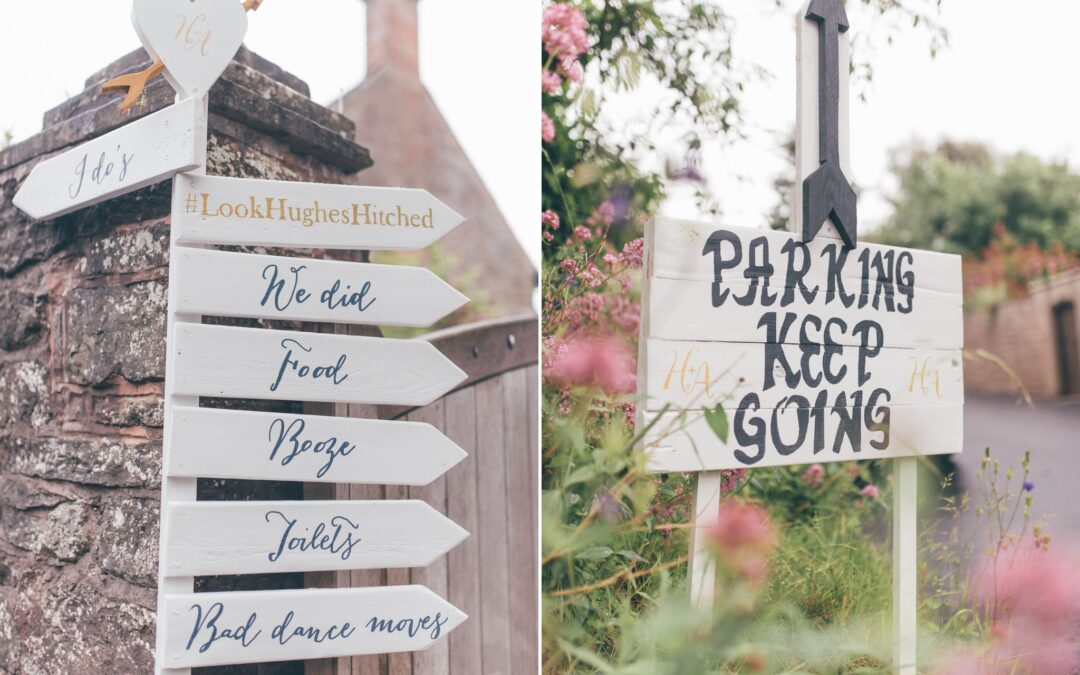 H+A
I do's
#LookHughesHitched
We did
Food
Booze
Toilets
Bad dance moves
PARKING
KEEP
H+A H+A
GOING